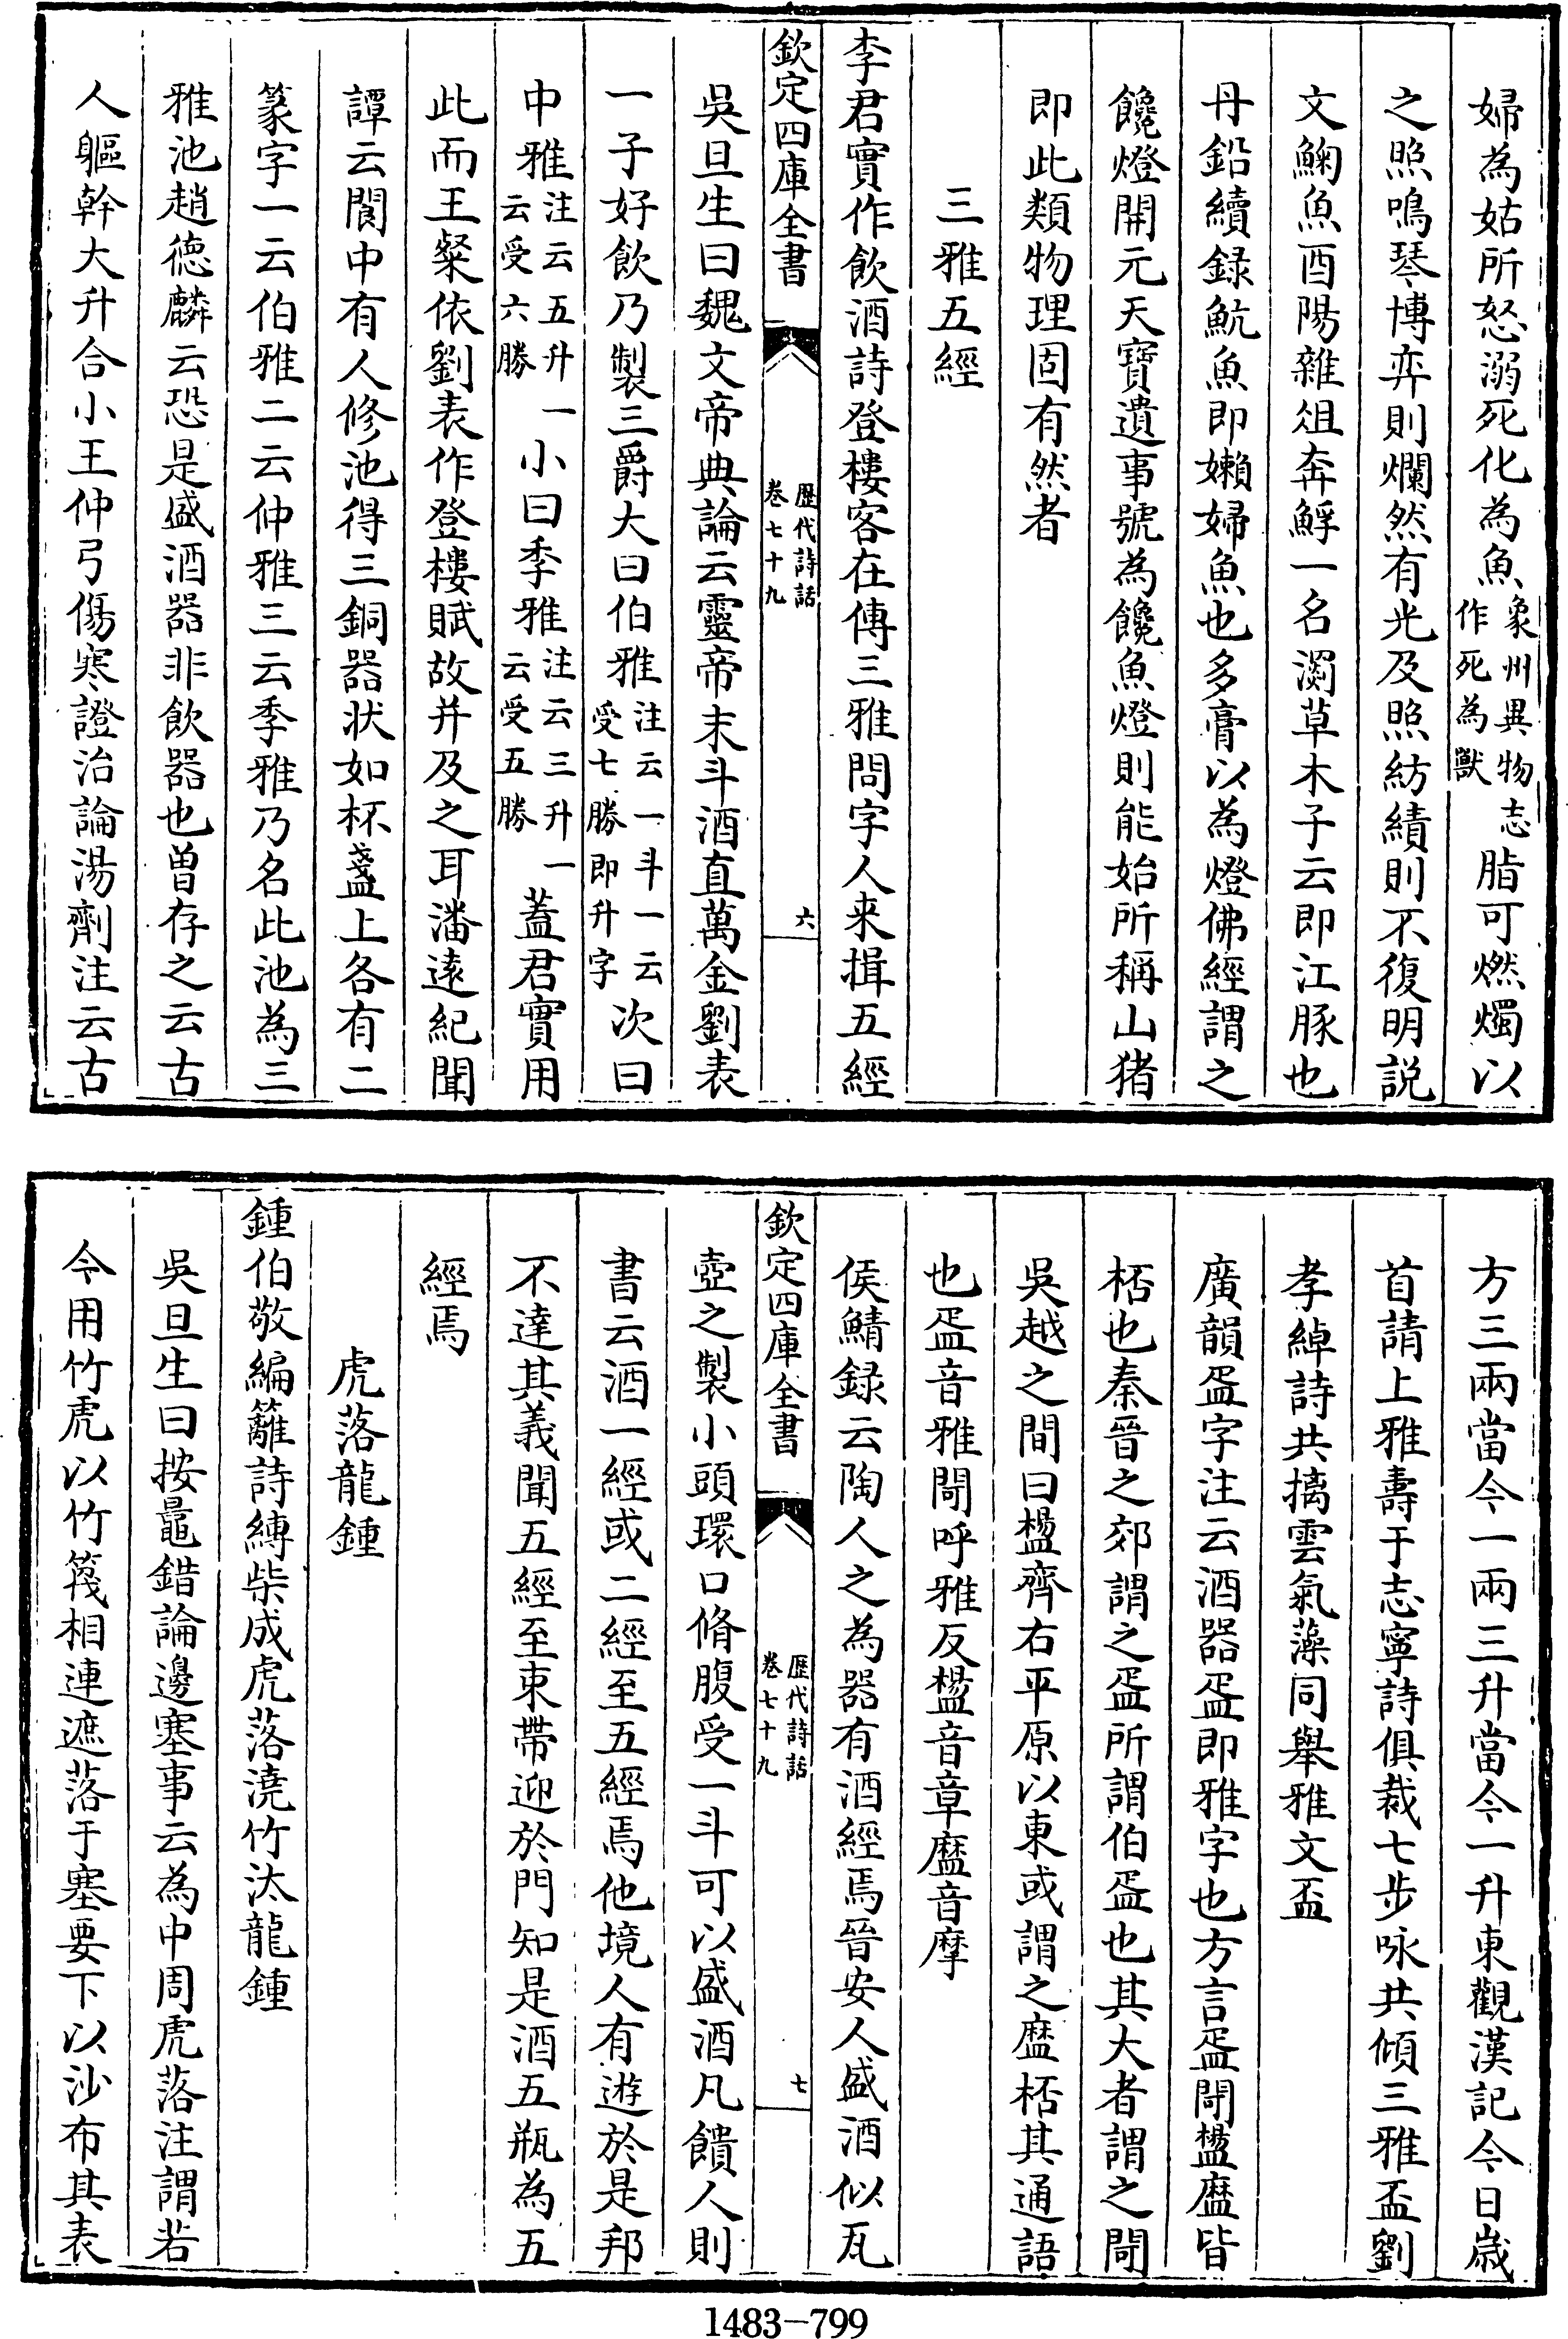 婦為姑所怒溺死化為魚象州異物志作死為獸脂可燃燭以
之照鳴琴博弈則爛然有光及照紡績則不復明説
文䱡魚酉陽雜俎奔䱐一名瀱草木子云即江豚也
丹鉛續録魧魚即嬾婦魚也多膏以為燈佛經謂之
饞燈開元天寳遺事號為饞魚燈則能始所稱山猪
即此類物理固有然者
三雅五經
李君實作飲酒詩登樓客在傳三雅問字人来揖五經
欽定四庫全書
歴代詩話
卷七十九
六
吳旦生曰魏文帝典論云靈帝末斗酒直萬金劉表
一子好飲乃製三爵大曰伯雅注云一斗一云受七勝即升字次曰
中雅注云五升一云受六勝小曰季雅注云三升一云受五勝蓋君實用
此而王粲依劉表作登樓賦故并及之耳潘遠紀聞
譚云閬中有人修池得三銅器状如杯盞上各有二
篆字一云伯雅二云仲雅三云季雅乃名此池為三
雅池趙徳麟云恐是盛酒器非飲器也曽存之云古
人軀幹大升合小王仲弓傷寒證治論湯劑注云古
方三兩當今一兩三升當今一升東觀漢記今日嵗
首請上雅壽于志寧詩俱裁七步咏共傾三雅盃劉
孝綽詩共摛雲氣藻同舉雅文盃
廣韻盃字注云酒器盃即雅字也方言盃閜㯫䀋皆
桮也秦晉之郊謂之盃所謂伯盃也其大者謂之閜
吳越之間曰㯫齊右平原以東或謂之䀋桮其通語
也盃音雅閜呼雅反㯫音章䀋音摩
侯鯖録云陶人之為器有酒經焉晉安人盛酒似瓦
欽定四庫全書
歴代詩話
卷七十九
七
壺之製小頭環口脩腹受一斗可以盛酒凡饋人則
書云酒一經或二經至五經焉他境人有遊於是邦
不達其義聞五經至束帶迎於門知是酒五瓶為五
經焉
虎落龍鍾
鍾伯敬編籬詩縛柴成虎落澆竹汰龍鍾
吳旦生曰按鼂錯論邊塞事云為中周虎落注謂若
今用竹虎以竹篾相連遮落于塞要下以沙布其表
1483-799